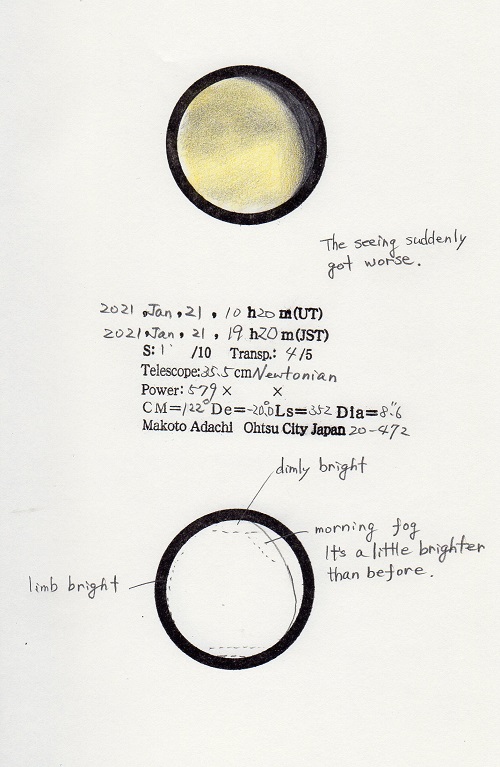 The seeing suddenly
got worse.
2021, Jan, 21, 10 h20 m(UT)
2021, Jan, 21, 19 h20 m(JST)
S: 1 /10 Transp.: 4/5
Telescope: 35.5 cm Newtonian
Power: 579 × ×
CM=122° De=-20.0° Ls=352 Dia=8."6
Makoto Adachi Ohtsu City Japan 20-472
dimly bright
morning fog
It's a little brighter
than before.
limb bright